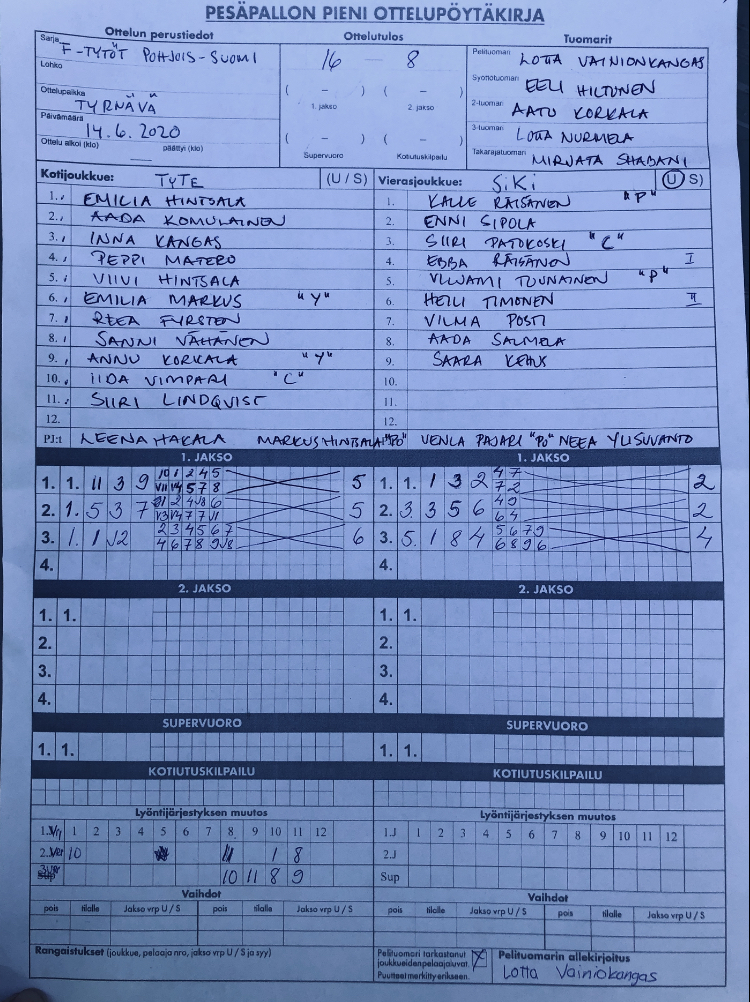 PESÄPALLON PIENI OTTELUPÖYTÄKIRJA
Ottelun perustiedot
Ottelutulos
Tuomarit
Sarja F-TYTÖT POHJOIS-SUOMI
16 — 8
Pelituomari LOTTA VAINIONKANGAS
Lohko
Syöttötuomari EELI HILTUNEN
Ottelupaikka TYRNÄVÄ
( – ) ( – )
1. jakso 2. jakso
2-tuomari AATU KORKALA
Päivämäärä 14.6.2020
3-tuomari LOTTA NURMELA
Ottelu alkoi (klo) päättyi (klo)
( – ) ( – )
Supervuoro Kotiutuskilpailu
Takarajatuomari MIRJATA SHABANI
Kotijoukkue: TYTE (U / S)
Vierasjoukkue: SiKi (U S)
1. EMILIA HINTSALA
1. KALLE RÄISÄNEN "P"
2. AADA KOMULAINEN
2. ENNI SIPOLA
3. INNA KANGAS
3. SIIRI PATOKOSKI "C"
4. PEPPI MATERO
4. EBBA RÄISÄNEN I
5. VIIVI HINTSALA
5. TUUNAINEN "P"
6. EMILIA MARKUS "Y"
6. HEILI TIMONEN II
7. REEA FYRSTEN
7. VILMA POSTI
8. SANNI VÄHÄNEN
8. AADA SALMELA
9. ANNU KORKALA "Y"
9. SAARA KEHUS
10. IIDA VIMPARI "C"
10.
11. SIIRI LINDQVIST
11.
12.
12.
PJ:t LEENA HAKALA MARKUS HINTSALA "PO"
VENLA PAJARI "PO" NEEA YLISUVANTO
1. JAKSO
1. JAKSO
1. 1. 11 3 9 5
1. 1. 1 3 2 4 7 7 2 2
2. 1. 5 3 7 5
2. 3 3 5 6 4 9 6 4 2
3. 1. 1 2 3 4 5 6 7 4 6 7 8 6
3. 5. 1 8 4 5 6 7 9 6 8 9 6 4
4.
4.
2. JAKSO
2. JAKSO
1. 1.
1. 1.
2.
2.
3.
3.
4.
4.
SUPERVUORO
SUPERVUORO
1. 1.
1. 1.
KOTIUTUSKILPAILU
KOTIUTUSKILPAILU
Lyöntijärjestyksen muutos
Lyöntijärjestyksen muutos
1. 1 2 3 4 5 6 7 8 9 10 11 12
1.J 1 2 3 4 5 6 7 8 9 10 11 12
2. 10 11 1 8
2.J
10 11 8 9
Sup
Vaihdot
Vaihdot
pois tilalle Jakso vrp U / S pois tilalle Jakso vrp U / S
pois tilalle Jakso vrp U / S pois tilalle Jakso vrp U / S
Rangaistukset (joukkue, pelaaja nro, jakso vrp U / S ja syy)
Pelituomari tarkastanut joukkueidenpelaajaluvat. X
Puutteet merkitty erikseen.
Pelituomarin allekirjoitus
Lotta Vainiokangas